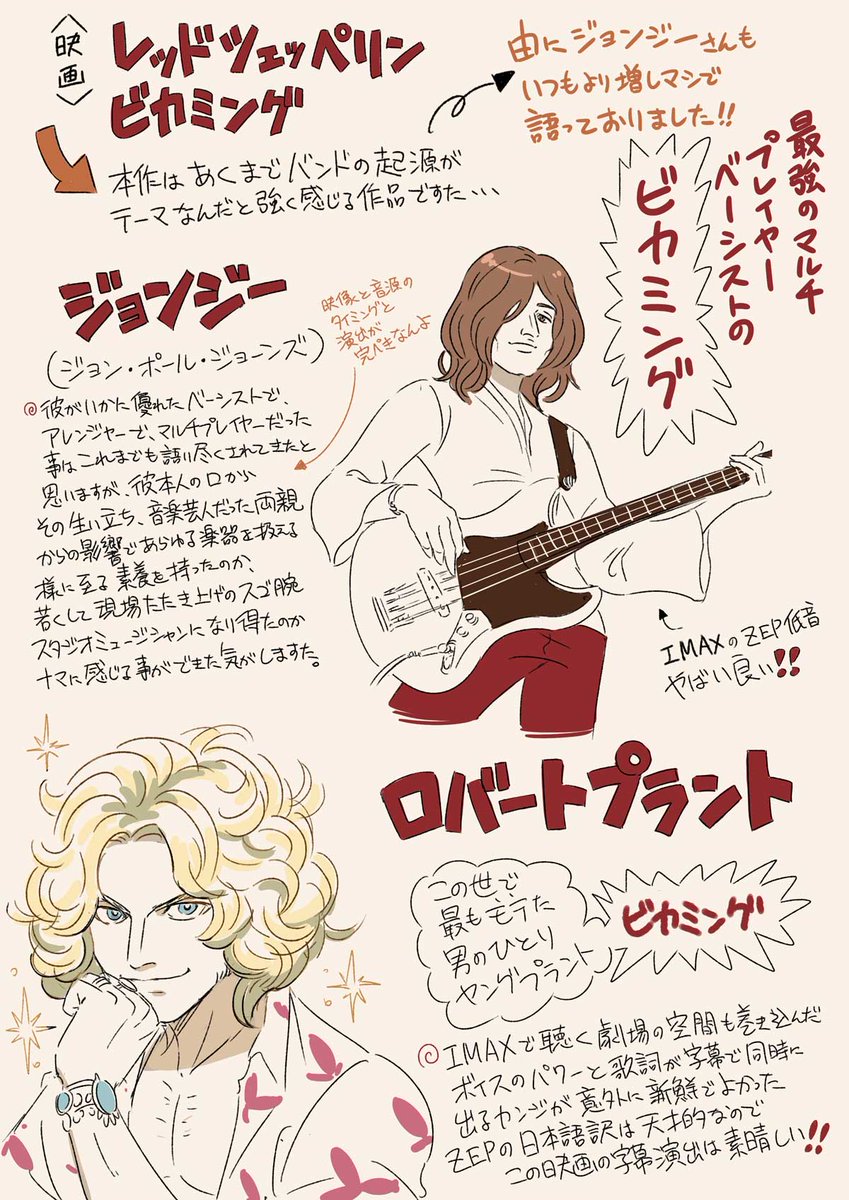 〈映画〉
レッドツェッペリン
ビカミング
本作はあくまでバンドの起源が
テーマなんだと強く感じる作品ですた・・・
由にジョンジーさんも
いつもより増しマシで
語っておりました!!
最強のマルチ
プレイヤー
ベーシストの
ビカミング
ジョンジー
(ジョン・ポール・ジョーンズ)
映像と音源の
タイミングと
演出が
完ぺきなんよ
彼がいかに優れたベーシストで、
アレンジャーで、マルチプレイヤーだった
事はこれまでも語り尽くされてきたと
思いますが、彼本人の口から
その生い立ち、音楽芸人だった両親
からの影響であらゆる楽器を扱える
様に至る素養を持ったのか、
若くして現場たたき上げのスゴ腕
スタジオミュージシャンになり得たのか
ナマに感じる事ができた気がしますた。
IMAXのZEP低音
やばい良い!!
ロバートプラント
この世で
最もモテた
男のひとり
ヤングプラント
ビカミング
IMAXで聴く劇場の空間も巻き込んだ
ボイスのパワーと歌詞が字幕で同時に
出るカンジが意外に新鮮でよかった
ZEPの日本語訳は天才的なので
この映画の字幕演出は素晴しい!!